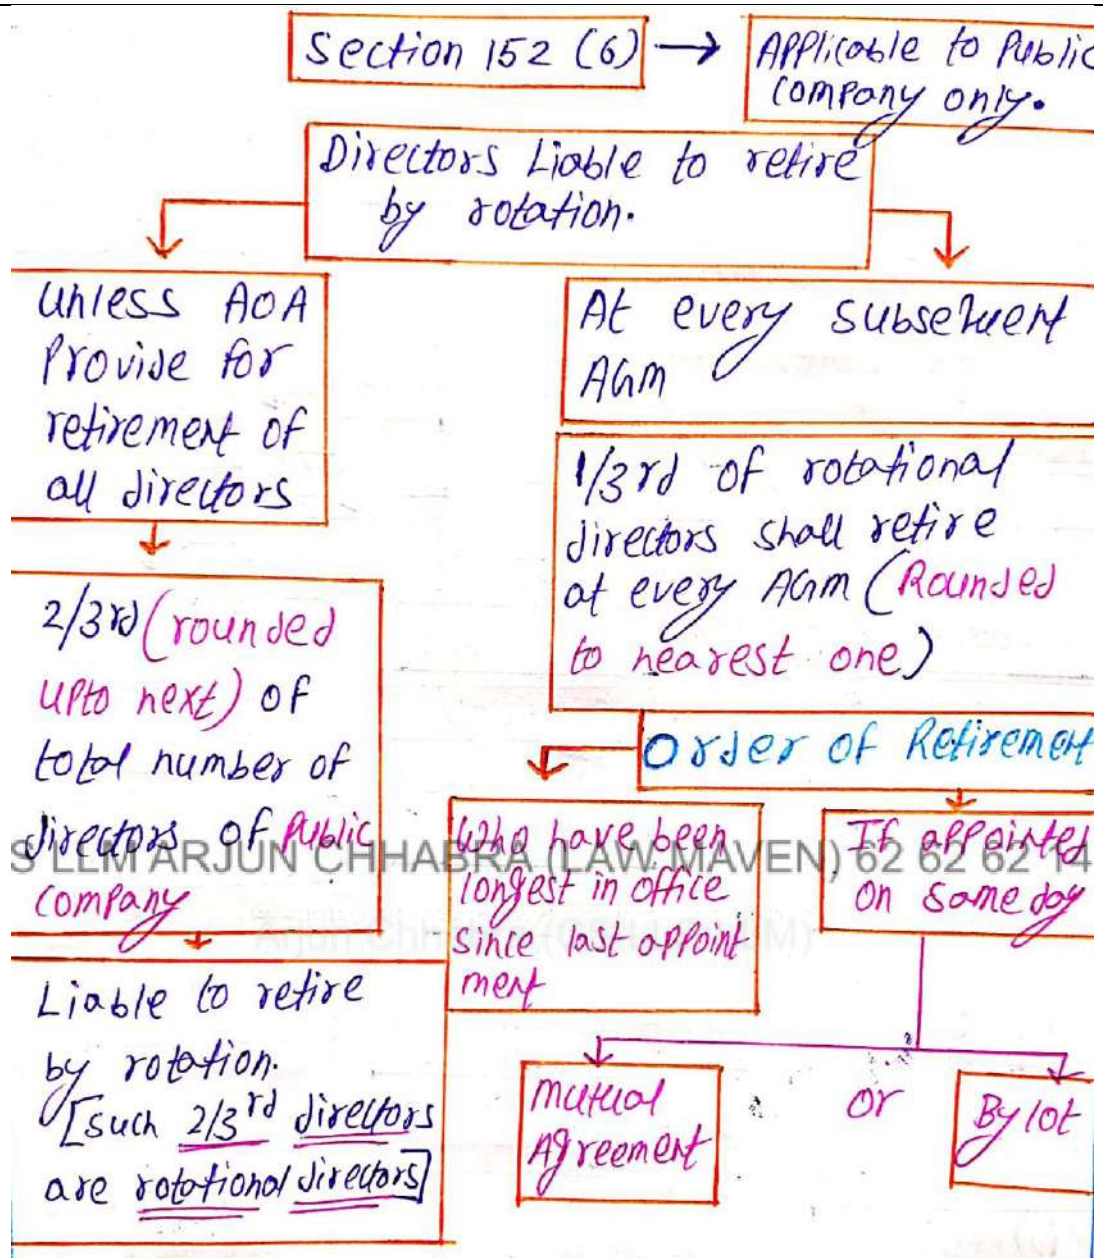 Section 152 (6)
Applicable to Public
Company only.
Directors Liable to retire
by rotation.
Unless AOA
Provide for
retirement of
all directors
2/3rd (rounded
upto next) of
total number of
directors of Public
company
Liable to retire
by rotation.
[such 2/3rd directors
are rotational directors]
At every subsequent
AGM
1/3rd of rotational
directors shall retire
at every AGM (Rounded
to nearest one)
Order of Retirement
Who have been
longest in office
since last appoint
ment
If appointed
on same day
Mutual
Agreement
or
By lot
S LLM ARJUN CHHABRA (LAW MAVEN) 62 62 62 14